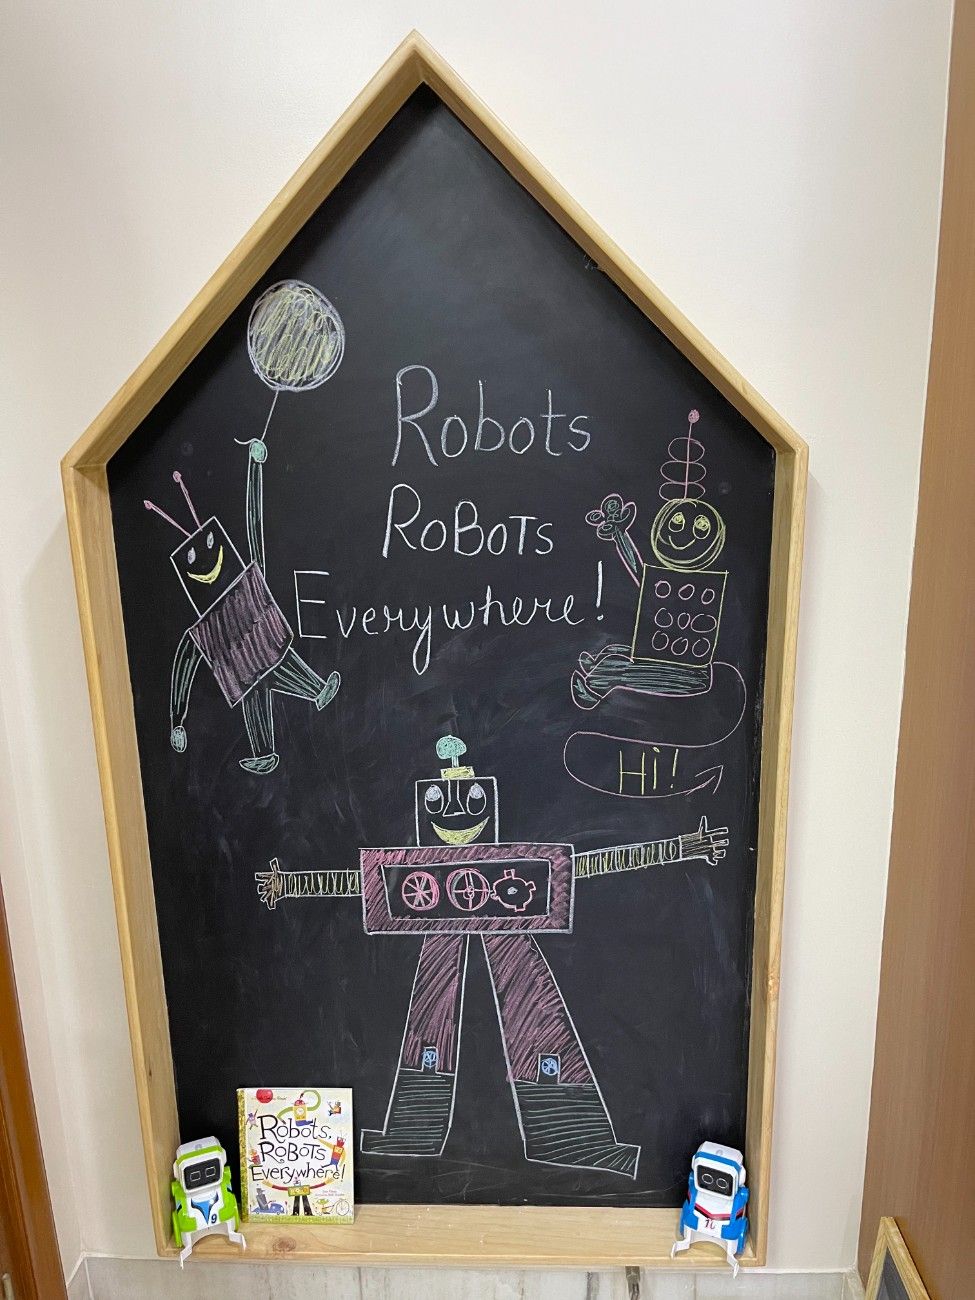 Robots
RoBoTs
Everywhere!
Hi!
Robots,
RoBoTs
Everywhere!
9
10